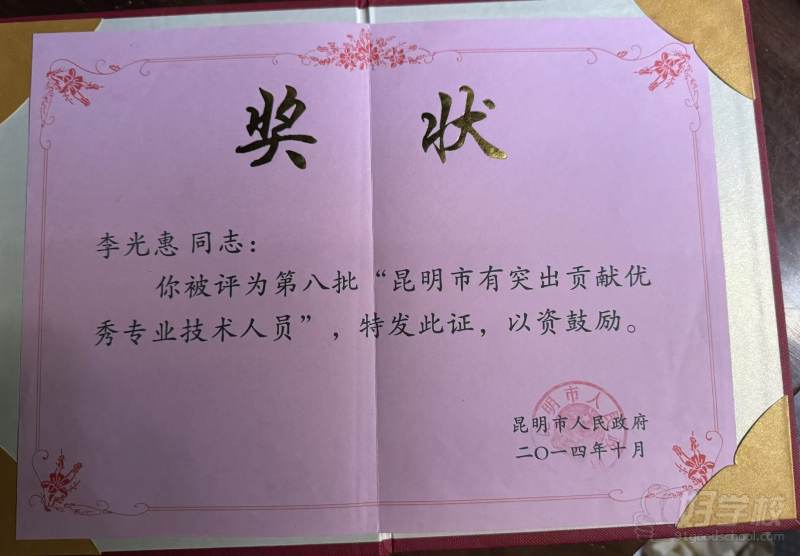 奖状
李光惠 同志：
你被评为第八批“昆明市有突出贡献优
秀专业技术人员”，特发此证，以资鼓励。
明市人民政
昆明市人民政府
二〇一四年十月
好学校
91goodschool.com